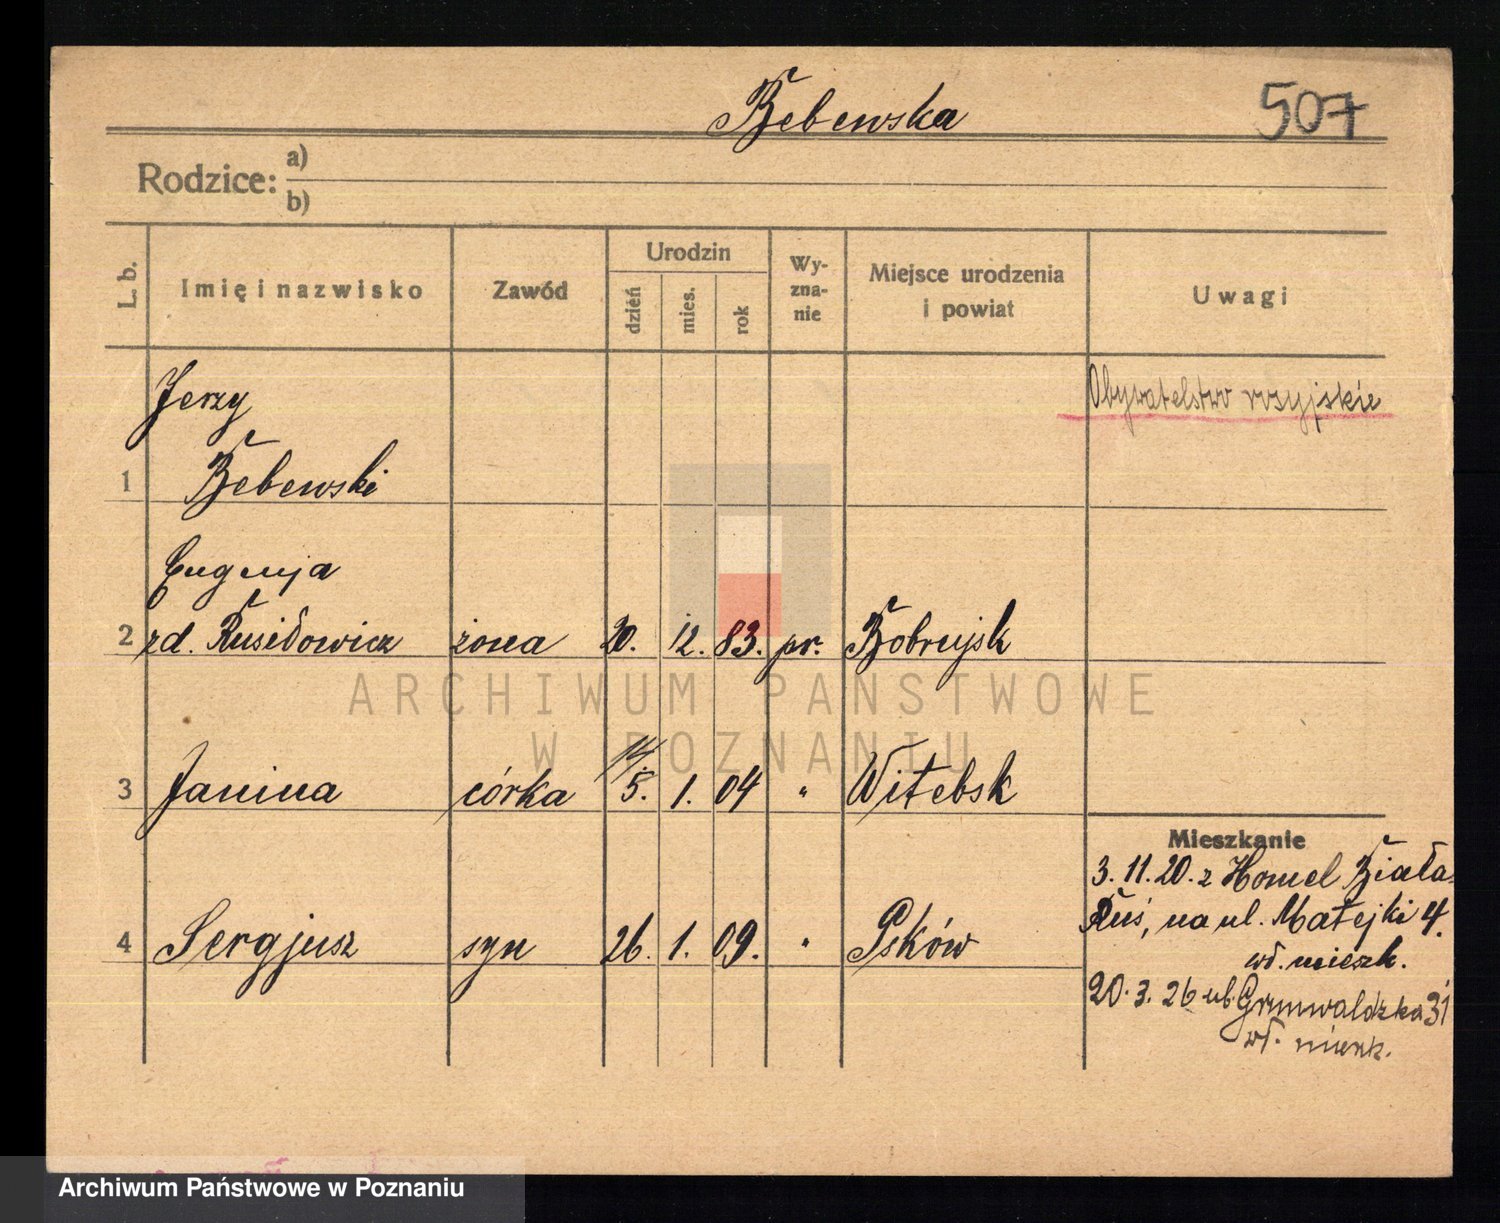 Bebewska
507
Rodzice: a)
b)
L. b.
Imię i nazwisko
Zawód
Urodzin
dzień
mies.
rok
Wy-
zna-
nie
Miejsce urodzenia
i powiat
Uwagi
Jerzy
1 Bebewski
Obywatelstwo rosyjskie
Eugenja
2 zd. Rusidowicz żona 20. 12. 83. pr. Bobrujsk
ARCHIWUM PAŃSTWOWE
W POZNANIU
14/
3 Janina córka 5. 1. 04 " Witebsk
4 Sergjusz syn 26. 1. 09. " Psków
Mieszkanie
3. 11. 20. z Homel Biała-
Ruś, na ul. Matejki 4.
wł. mieszk.
20. 3. 26 ul. Grunwaldzka 31
wł. mieszk.
Archiwum Państwowe w Poznaniu